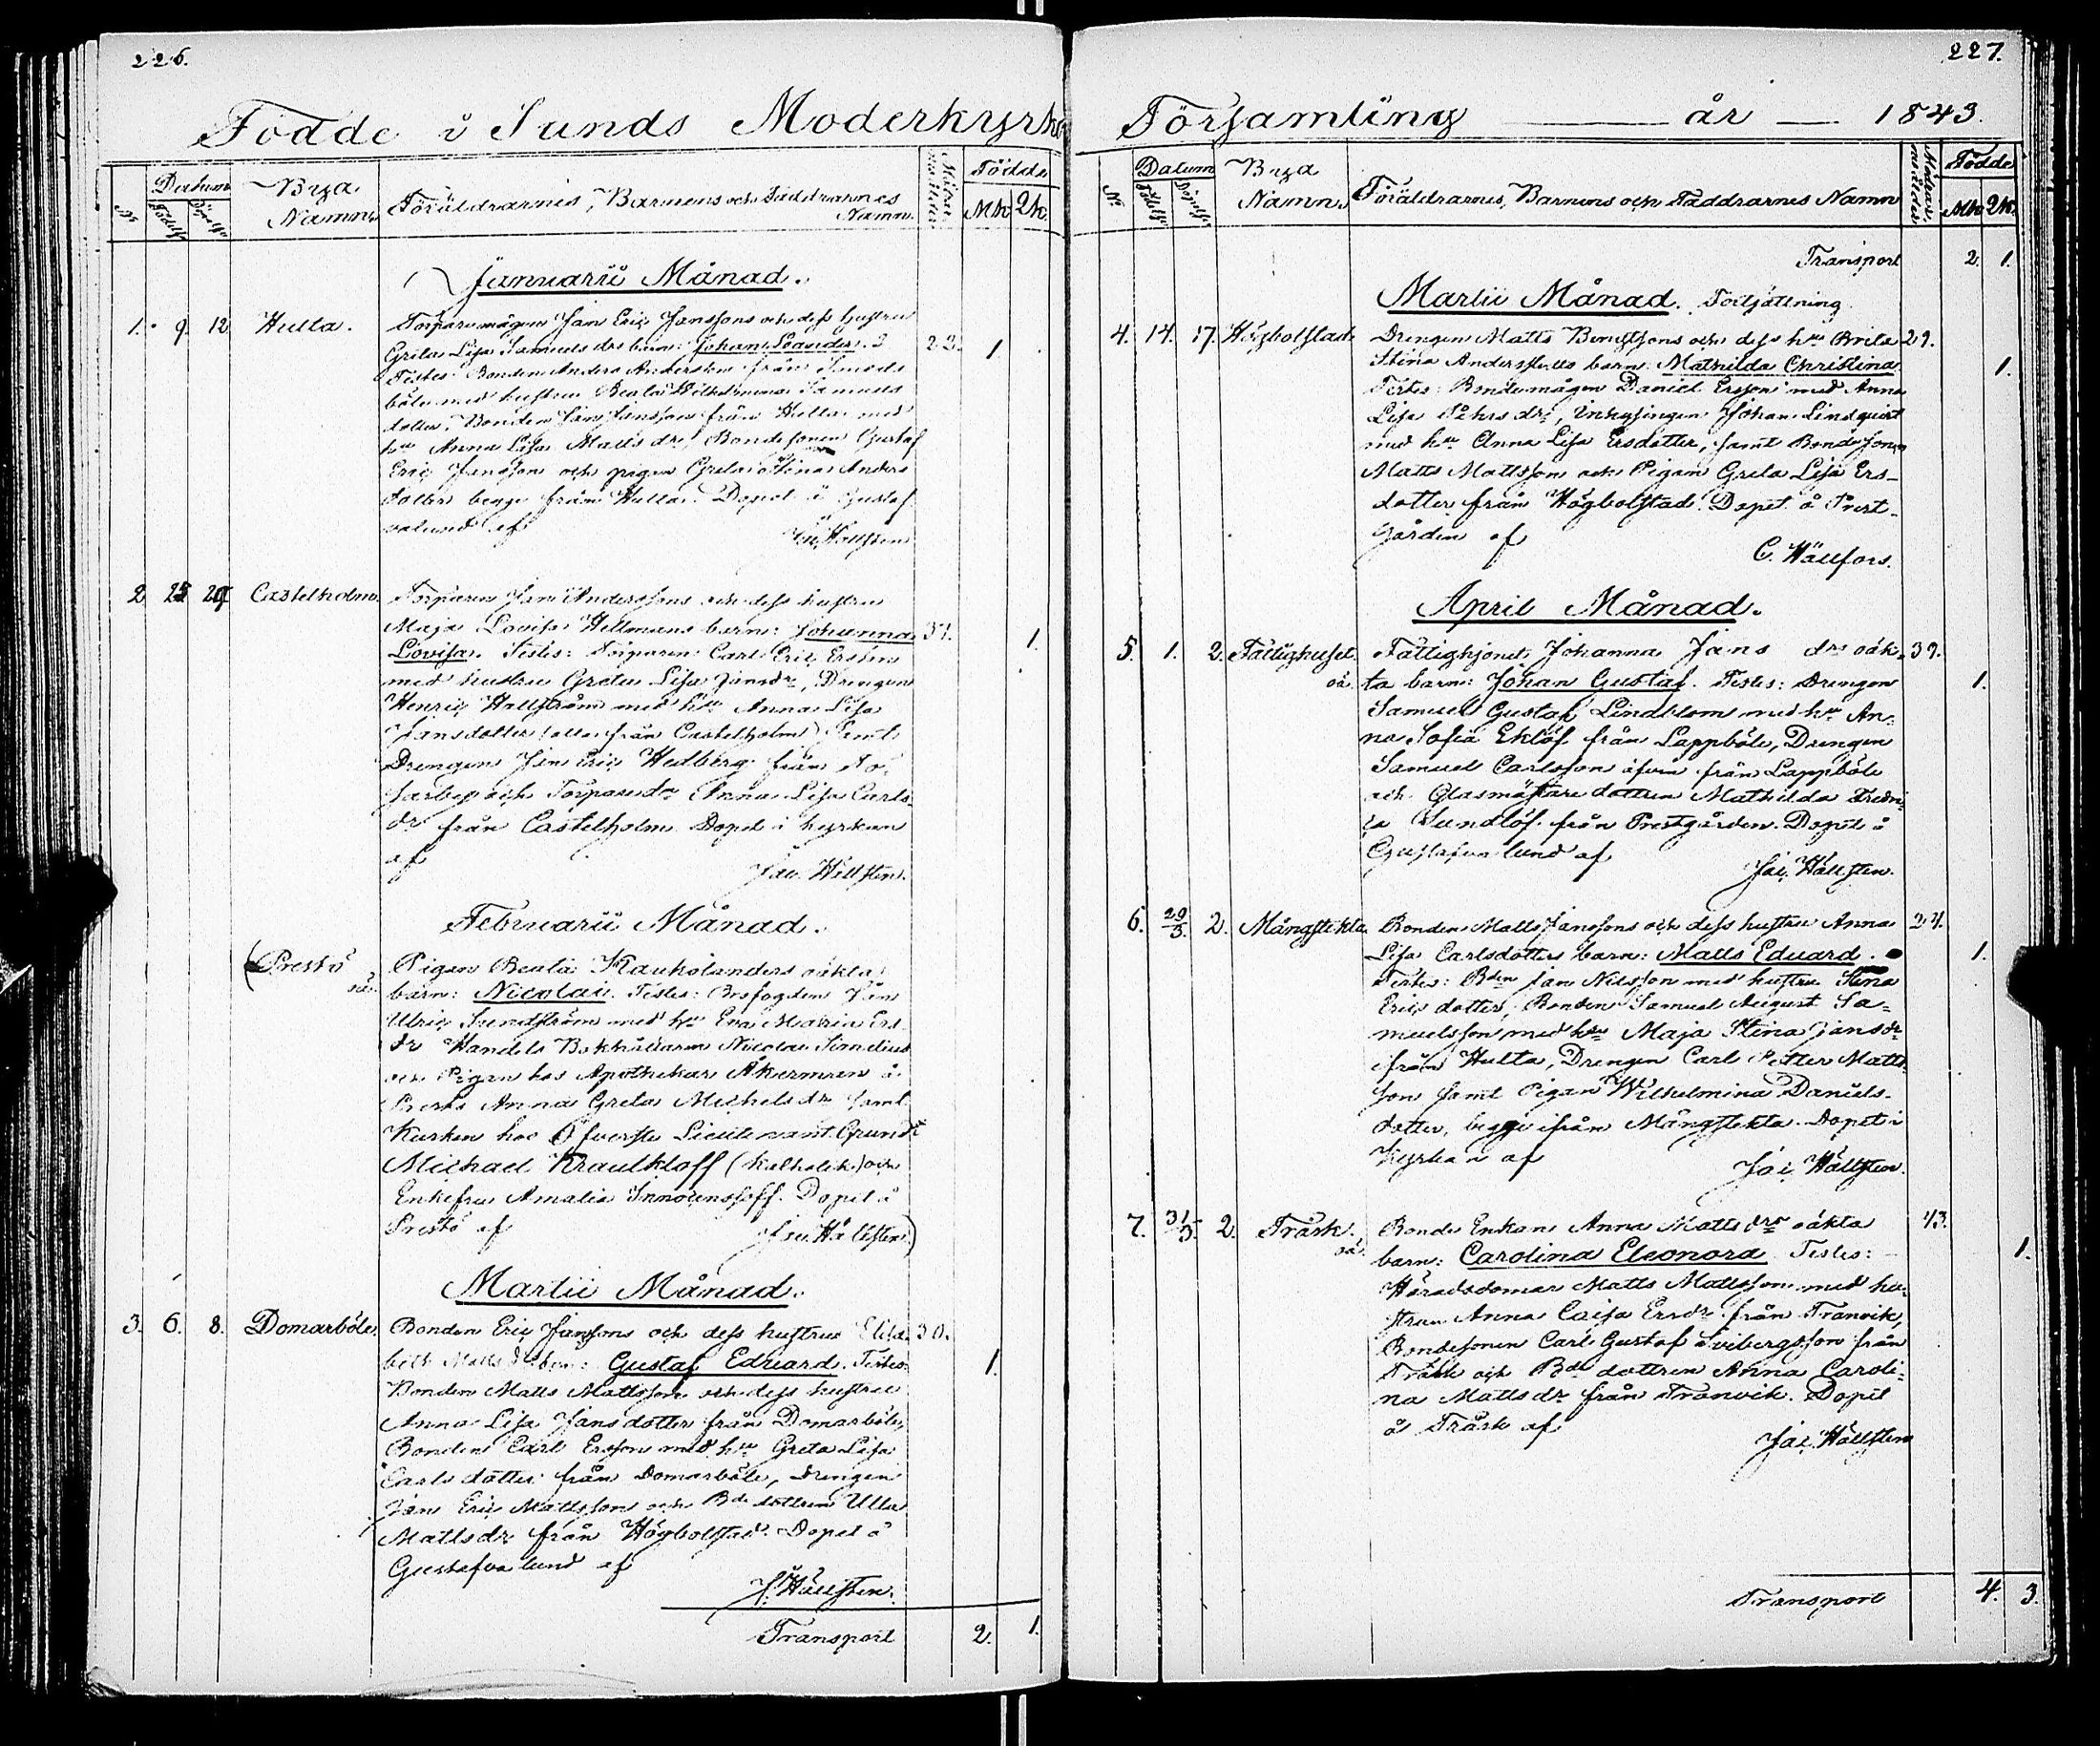 226.
Födde i Sunds Moderkyrko
N:
Datum
Födelse
Döpelse
Byza
Namn.
Föräldrarnes, Barnens och Faddrarnes
Namn.
Födde
Mk
Qk.
Januarii Månad.
1. 9. 12 Hulta. Torparemågen Jan Eric Janssons och dess hustru
Greta Lisa Samuels drs barn: Johan Leander. 22. 1
Testes: Bonden Anders Andersson från
böle med hustru Beata Wilhelmina Samuels
dotter, Bonden Jan Jansson från Hulta med
hu Anna Lisa Matts dr, Bondesonen Gustaf
Eric Jansson och pigan Greta Stina Anders
dotter begge från Hulta. Döpet å Gustaf
valund af
Hällsten
2 25 29 Castelholm. Torparen Jan Anderssons och dess hustru
Maja Lovisa Hellmans barn: Johanna 37. 1.
Lovisa. Testes: Torparen Carl Eric Ersson
med hustru Greta Lisa Jansdr, Drengen
Henric Hallström med hu Anna Lisa
Jansdotter (alla från Castelholm) samt
Drengen Jan Eric Hedberg från To-
sarby och Torparedr Anna Lisa Carls
dr från Castelholm. Döpet i kyrkan
af
Jac. Hällsten.
Februarii Månad.
(Prestö Pigan Beata Kaukolanders oäkta
oä. barn: Nicolai. Testes: Brofogden Jan
Ulric Sundström med hu Eva Maria Ers
dr Handels Bokhållaren Nicolai Simelius
och Pigan hos Apothekar Åkerman å
Prestö Anna Greta Michels dr samt
Kusken hos Öfverste Lieutenant Grundt
Michael Kraulkloff (katholik) och
Enkefru Amalia Döpet å
Prestö af Jac. Hällsten)
Martii Månad.
3. 6. 8. Domarböle. Bonden Eric Janssons och dess hustru Elisa- 30.
beth Matts dr barn: Gustaf Eduard. Testes: 1.
Bonden Matts Mattsson och dess hustru
Anna Lisa Jansdotter från Domarböle,
Bonden Carl Ersson med hu Greta Lisa
Carls dotter från Domarböle, Drengen
Jan Eric Mattsson och Bde dottren Ulla
Mattsdr från Högbolstad. Döpet å
Gustafva lund af
J. Hällsten.
Transport 2. 1.
227.
Församling år 1843.
N:
Datum
Födelse
Döpelse
Byza
Namn.
Föräldrarnes, Barnens och Faddrarnes Namn
Födde
Mk
Qk.
Transport 2. 1.
Martii Månad. Fortsättning
4. 14. 17. Högbolstad. Drengen Matts Bengtssons och dess hu Brita 29.
Stina Andersdotters barn: Mathilda Christina. 1.
Testes: Bondemågen Daniel Ersson med Anna
Lisa Pehrs dr, Inhysingen Johan Lindquist
med hu Anna Lisa Ersdotter, samt Bondesonen
Matts Mattsson och Pigan Greta Lisa Ers-
dotter från Högbolstad. Döpet å Prest-
gården af
C. Hällfors.
April Månad.
5. 1. 2. Fattighuset. Fattighjonet Johanna Jans drs oäk- 39.
oä. ta barn: Johan Gustaf. Testes: Drengen 1.
Samuel Gustaf Lindblom med hu An-
na Sofia Eklöf från Lappböle, Drengen
Samuel Carlsson äfven från Lappböle
och Glasmästare dottren Mathilda Fredri-
ca Sundlöf från Prestgården. Döpet å
Gustafva lund af
Jac. Hällsten.
6. 29/3. 2. Mångstekta. Bonden Matts Janssons och dess hustru Anna 24.
Lisa Carlsdotters barn: Matts Eduard. 1.
Testes: Bden Jan Nilsson med hustru Stina
Erics dotter, Bonden Samuel August Sa-
muelsson med hu Maja Stina Jans dr
ifrån Hulta, Drengen Carl Petter Matts
son samt Pigan Wilhelmina Daniels-
dotter, begge ifrån Mångstekta. Döpet i
Kyrkan af
Jac. Hällsten.
7. 31/3. 2. Träsk. Bonde Enkan Anna Matts drs oäkta 43.
oä. barn: Carolina Eleonora. Testes: 1.
Häradsdomar Matts Mattsson med hu-
strun Anna Caisa Ersdr från Tranvik,
Bondesonen Carl Gustaf Svebergsson från
Träsk och Bde dottren Anna Caroli-
na Mattsdr från Tranvik. Döpet
å Träsk af
Jac. Hällsten
Transport 4. 3.